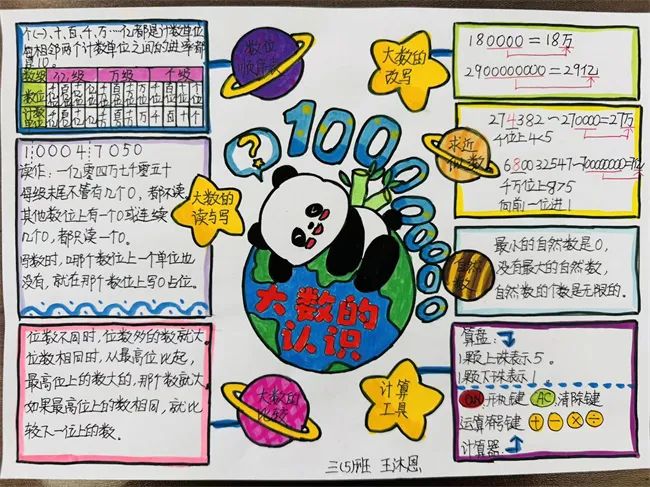 个(一)、十、百、千、万…亿都是计数单位
每相邻两个计数单位之间的进率都
是10。
数级 亿级 万级 个级
数位
数位
顺序表
大数的
改写
180000=18万
2900000000=29亿
1 0004 7050
读作:一亿零四万七千零五十
每级末尾不管有几个0,都不读,
其他数位上有一个0或连续
几个0,都只读一个0。
写数时,哪个数位上一个单位也
没有,就在那个数位上写0占位。
大数的
读与写
?
1000000000
大数的
认识
求近
似数
274382~270000=27万
4位上4<5
680032547~700000000=7亿
千万位上8>5
向前一位进1
自然
数
最小的自然数是0,
没有最大的自然数,
自然数的个数是无限的。
位数不同时,位数多的数就大。
位数相同时,从最高位比起,
最高位上的数大的,那个数就大
如果最高位上的数相同,就比
较下一位上的数。
大数的
比较
计算
工具
算盘:
1颗上珠表示5。
1颗下珠表示1。
ON开机键 AC清除键
运算符号键 + − × ÷
计算器:
三(5)班 王沐恩